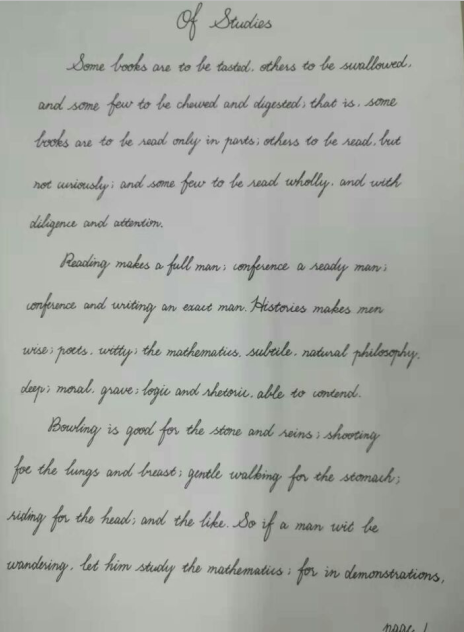 Of Studies
Some books are to be tasted, others to be swallowed,
and some few to be chewed and digested; that is, some
books are to be read only in parts; others to be read, but
not curiously; and some few to be read wholly, and with
diligence and attention.
Reading makes a full man; conference a ready man;
conference and writing an exact man. Histories makes men
wise; poets, witty; the mathematics, subtile, natural philosophy,
deep; moral, grave; logic and rhetoric, able to contend.
Bowling is good for the stone and reins; shooting
foe the lungs and breast; gentle walking for the stomach;
riding for the head; and the like. So if a man wit be
wandering, let him study the mathematics; for in demonstrations,
page 1